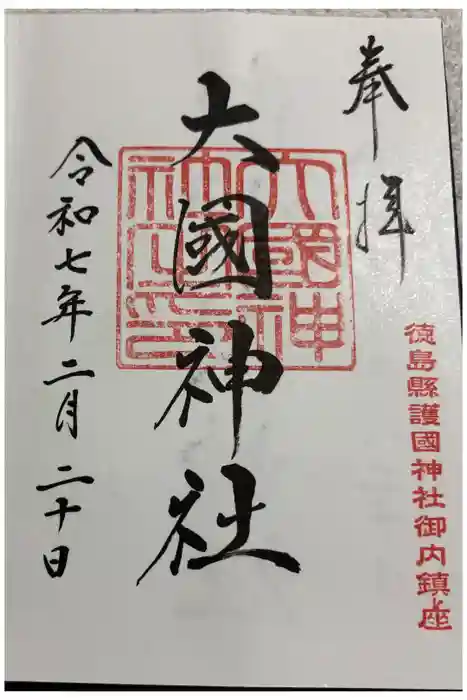 奉拝
徳島縣護國神社御内鎮座
大國神社
大國神社之印
令和七年二月二十日